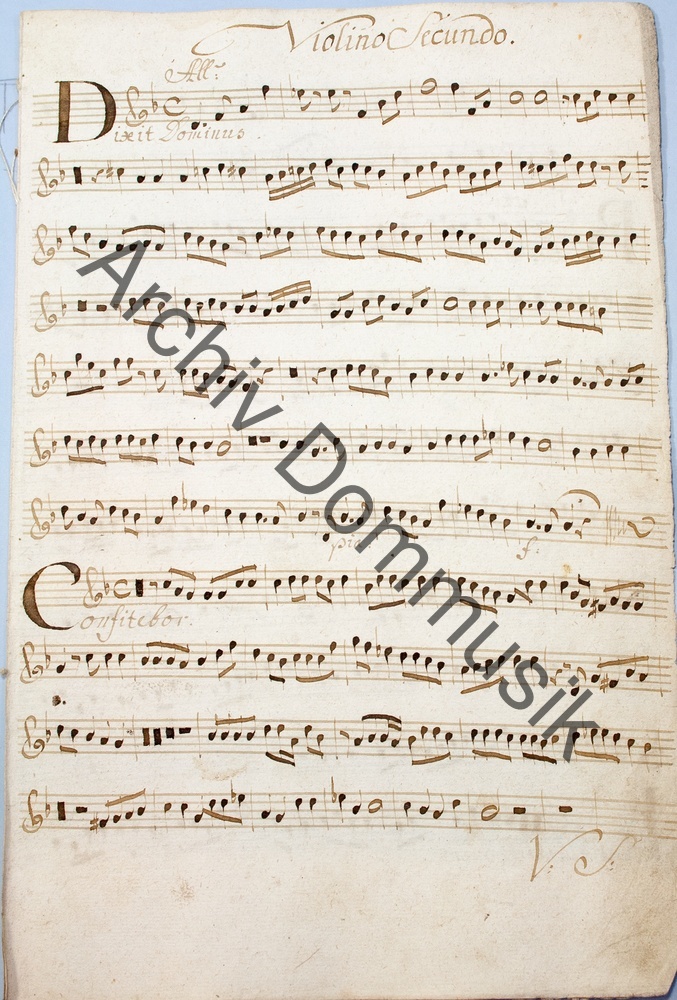 Violino Secundo.
All:
Dixit Dominus.
pia:
f:
Confitebor.
V: S:
Archiv Dommusik